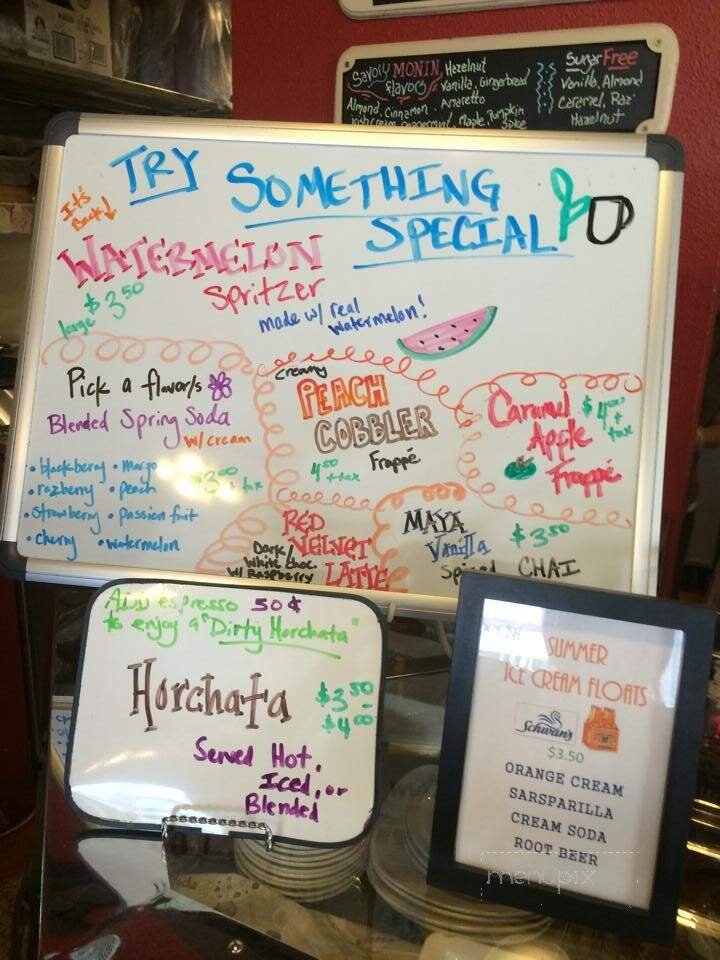 Savory MONIN flavors
Hazelnut
Vanilla, Gingerbread
Almond, Cinnamon, Amaretto
Irish Cream, Peppermint, Maple, Pumpkin Spice
Sugar Free
Vanilla, Almond
Caramel, Raz
Hazelnut
TRY SOMETHING
SPECIAL
It's Back
WATERMELON
Spritzer
large $3.50
made w/ real
watermelon!
Pick a flavor/s
Blended Spring Soda
w/ cream
• blackberry • mango
• razberry • peach
• Strawberry • passion fruit
• cherry • watermelon
$3.00 + tax
Creamy
PEACH
COBBLER
Frappé
4.50 + tax
Caramel
Apple
Frappé
$4.50 + tax
RED
VELVET
LATTE
Dark/
White choc.
w/ Raspberry
MAYA
Vanilla
Spiced CHAI
$3.50
Add espresso 50¢
to enjoy a "Dirty Horchata"
Horchata
$3.50
-
$4.00
Served Hot,
Iced, or
Blended
SUMMER
ICE CREAM FLOATS
Schwan's
$3.50
ORANGE CREAM
SARSPARILLA
CREAM SODA
ROOT BEER
menupix